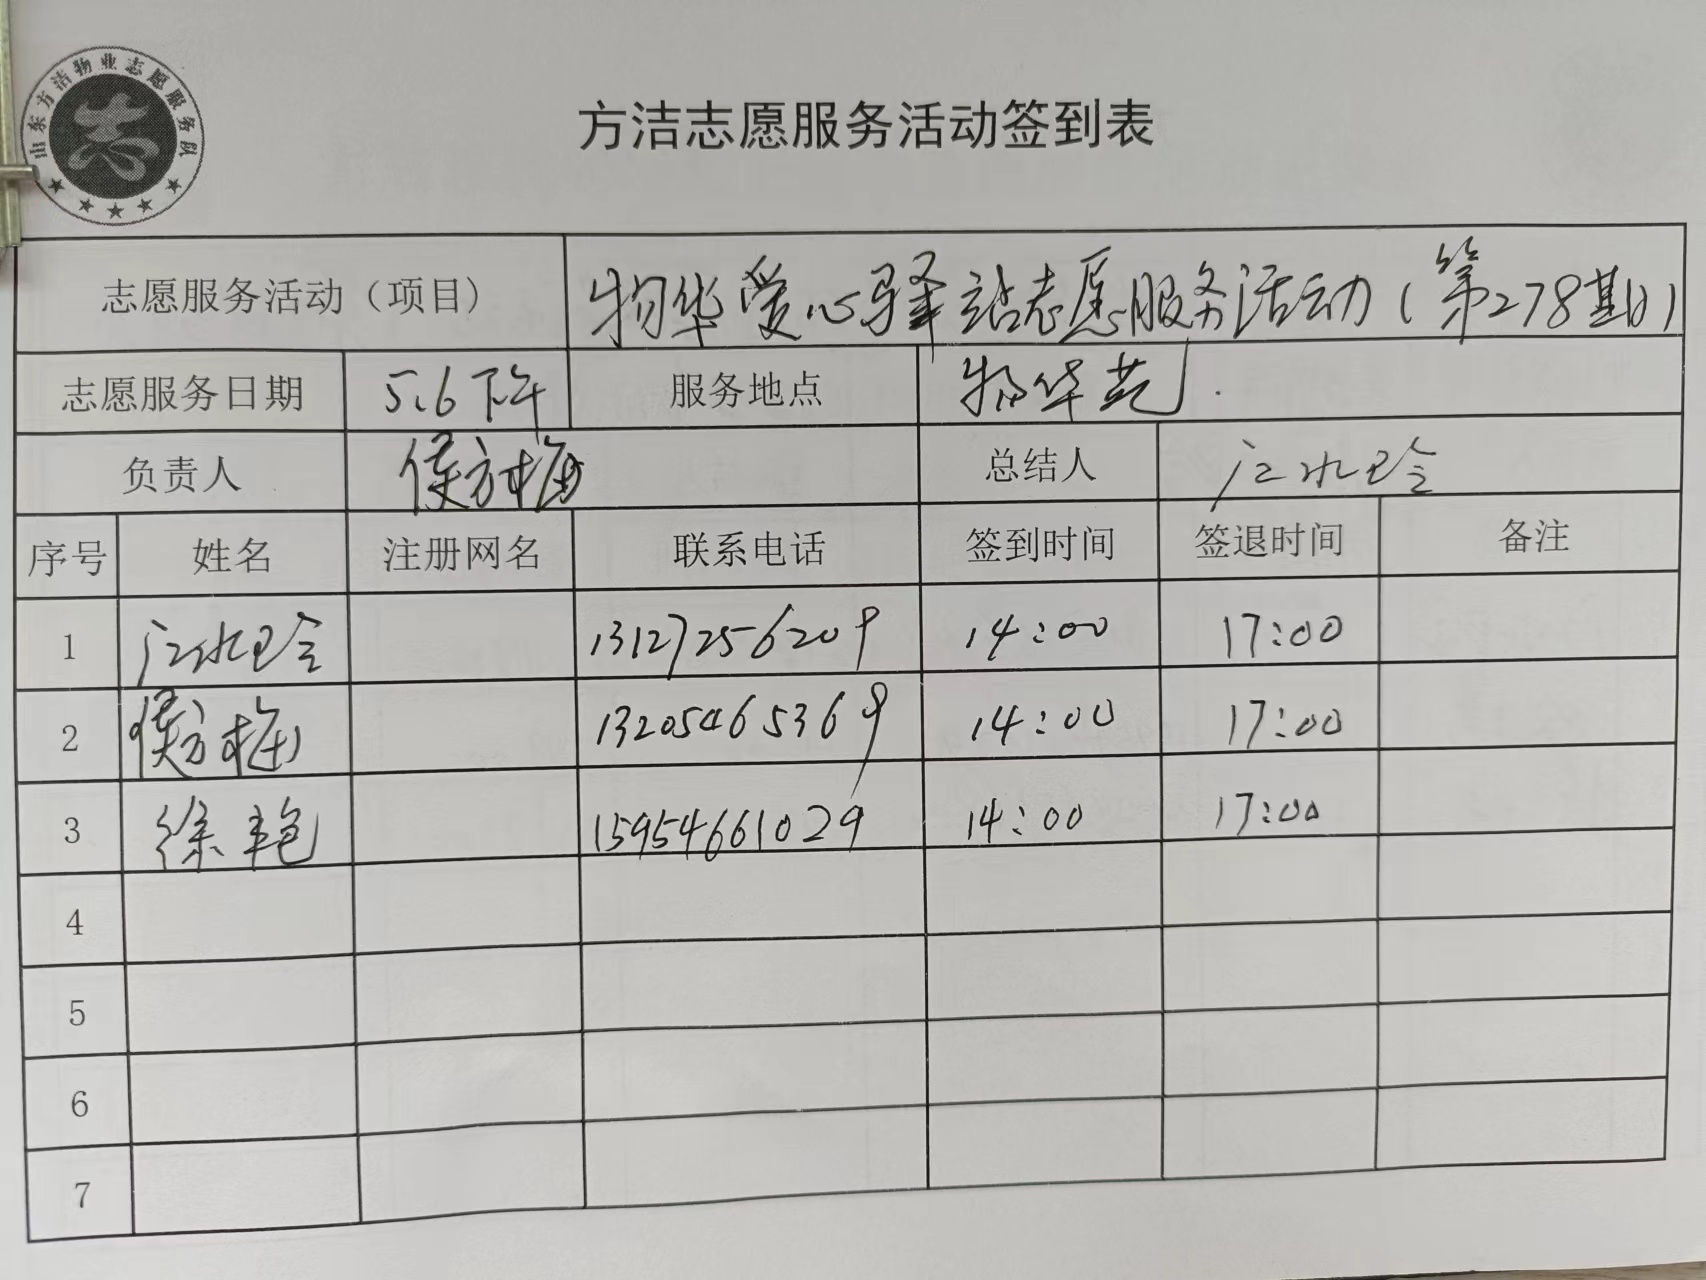 山东方洁物业志愿服务队
方洁志愿服务活动签到表
志愿服务活动（项目） 物华爱心驿站志愿服务活动（第278期）
志愿服务日期 5.6下午 服务地点 物华苑
负责人 侯方梅 总结人 江水玲
序号 姓名 注册网名 联系电话 签到时间 签退时间 备注
1 江水玲 13127256209 14:00 17:00
2 侯方梅 13205465369 14:00 17:00
3 徐艳 15954661029 14:00 17:00
4
5
6
7